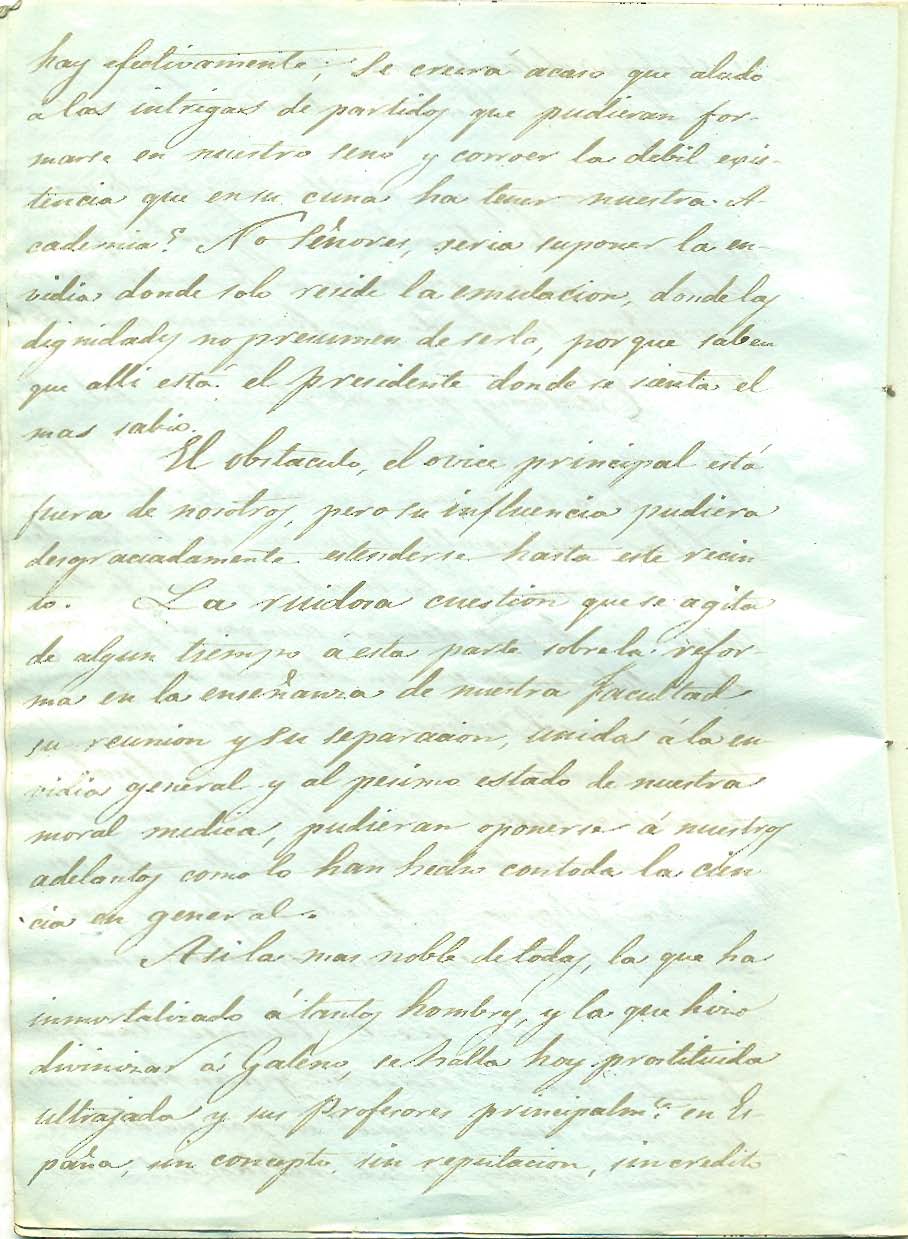 hay efectivamente; se creerá acaso que aludo
a las intrigas de partidos que pudieran for-
marse en nuestro seno y corroer la debil exis-
tencia que en su cuna ha tener nuestra A-
cademia? No Señores, seria suponer la en-
vidia donde solo reside la emulacion, donde las
dignidades no presumen de serlo, porque saben
que alli está el presidente donde se sienta el
mas sabio.
El obstaculo, el principal está
fuera de nosotros, pero su influencia pudiera
desgraciadamente estenderse hasta este recin-
to. La ruidosa cuestion que se agita
de algun tiempo á esta parte sobre la refor-
ma en la enseñanza de nuestra facultad
su reunion y su separacion, unida á la en
vidia general y al pesimo estado de nuestra
moral medica, pudieran oponerse á nuestros
adelantos como lo han hecho con toda la cien
cia en general.
Asi la mas noble de todas, la que ha
inmortalizado á tantos hombres, y la que hizo
divinizar á Galeno, se halla hoy prostituida
ultrajada y sus Profesores principalmte. en Es-
paña, sin concepto, sin reputacion, sin credito